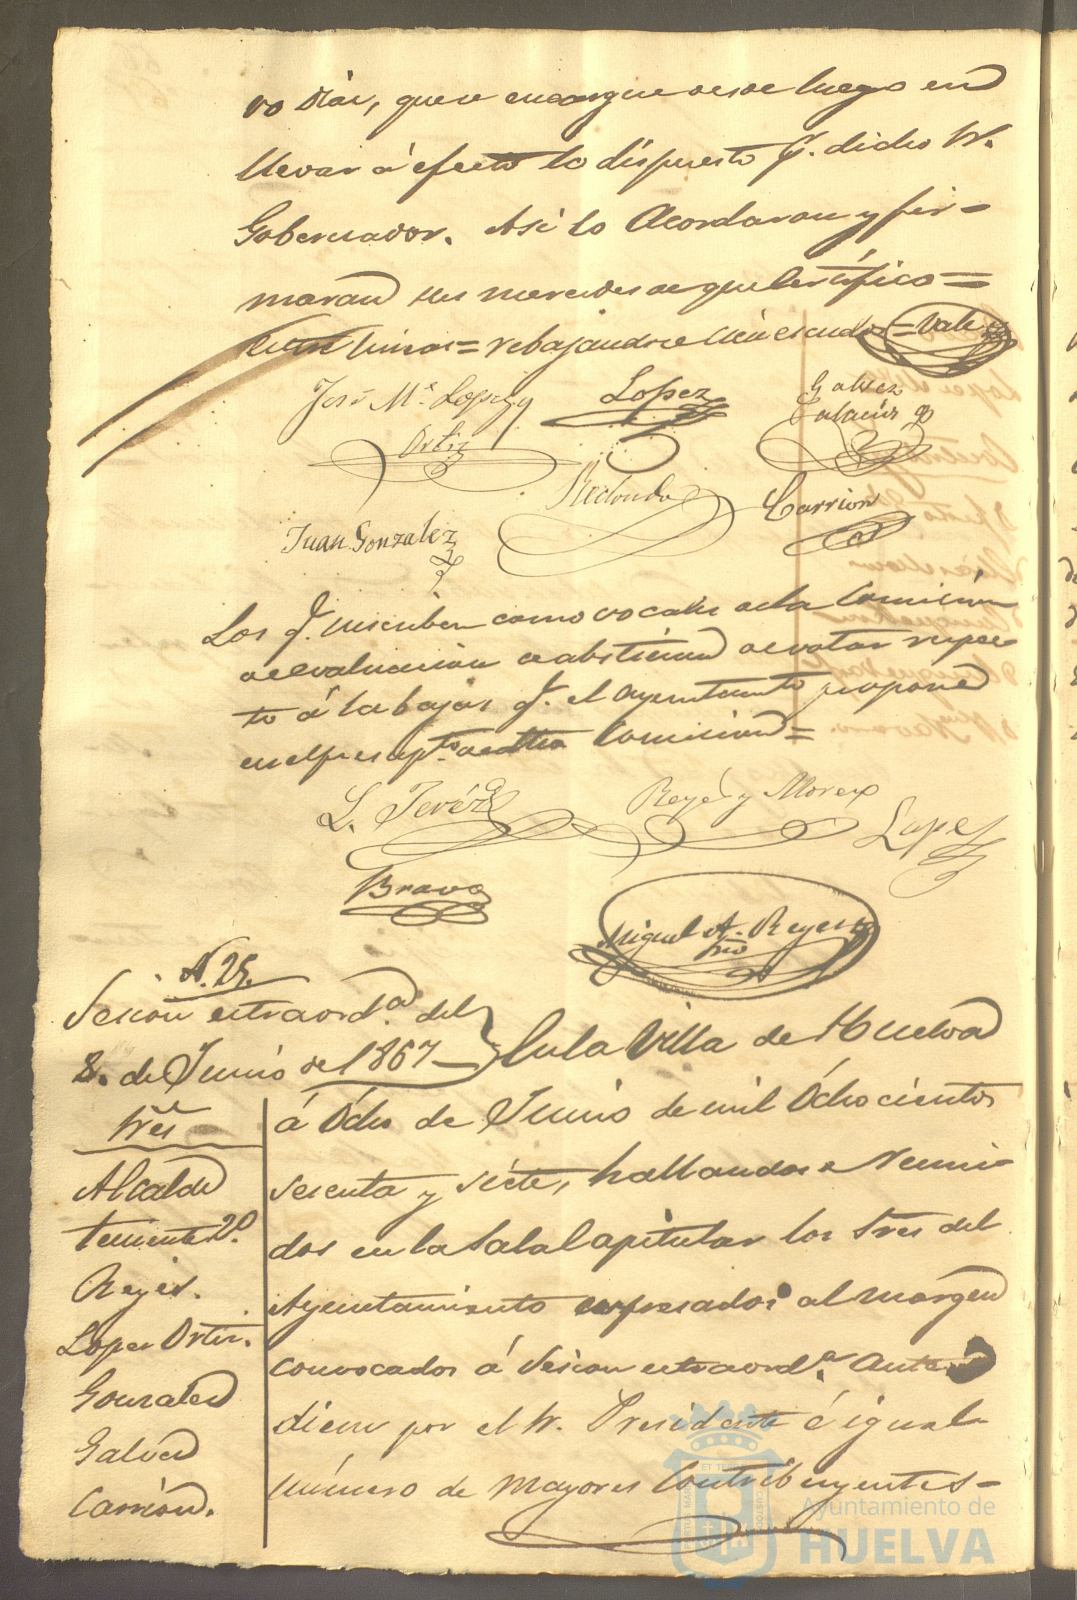 vo Diaz, que se encargue desde luego en
llevar á efecto lo dispuesto pr. dicho Sr.
Gobernador. Asi lo Acordaron y fir=
maran sus mercedes de que certifico=
rebajandose = Vale
José Ma. Lopez y
Ortiz
Lopez
Galvez
Palacios
Redondo
Carrion
Juan Gonzalez
Los q. suscriben como vocales de la Comision
de evaluacion se abstienen de votar respec
to á las bajas q. el Ayuntamto. propone
Comision=
L. Jeréz
Reyes y Moreno
Lopez
Bravo
Miguel A. Reyes
Srio
N. 25.
Sesion extraorda. del
8. de Junio de 1867
Sres
Alcalde
Teniente 2o.
Reyes.
Lopez Ortiz.
Gonzalez
Galvez
Carrion.
En la Villa de Huelva
á Ocho de Junio de mil Ochocientos
sesenta y siete, hallandose Reuni-
dos en la Sala Capitular los Sres del
Ayuntamiento expresados al margen
convocados á Sesion extraorda. Ante
diem por el Sr. Presidente é igual
número de mayores Contribuyentes=
Ayuntamiento de
HUELVA